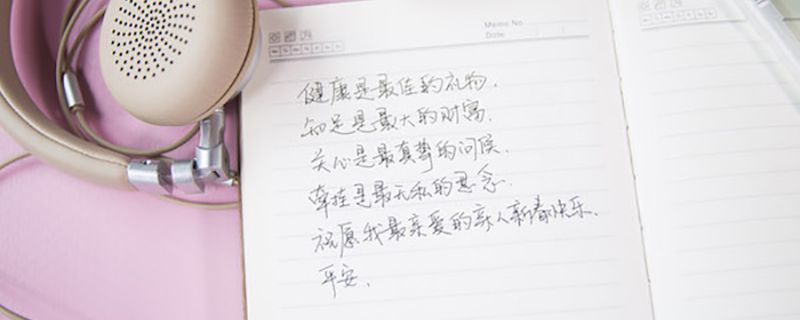 Memo No.
Date
健康是最佳的礼物,
知足是最大的财富,
关心是最真挚的问候,
牵挂是最无私的思念.
祝愿我最亲爱的亲人新春快乐,
平安.